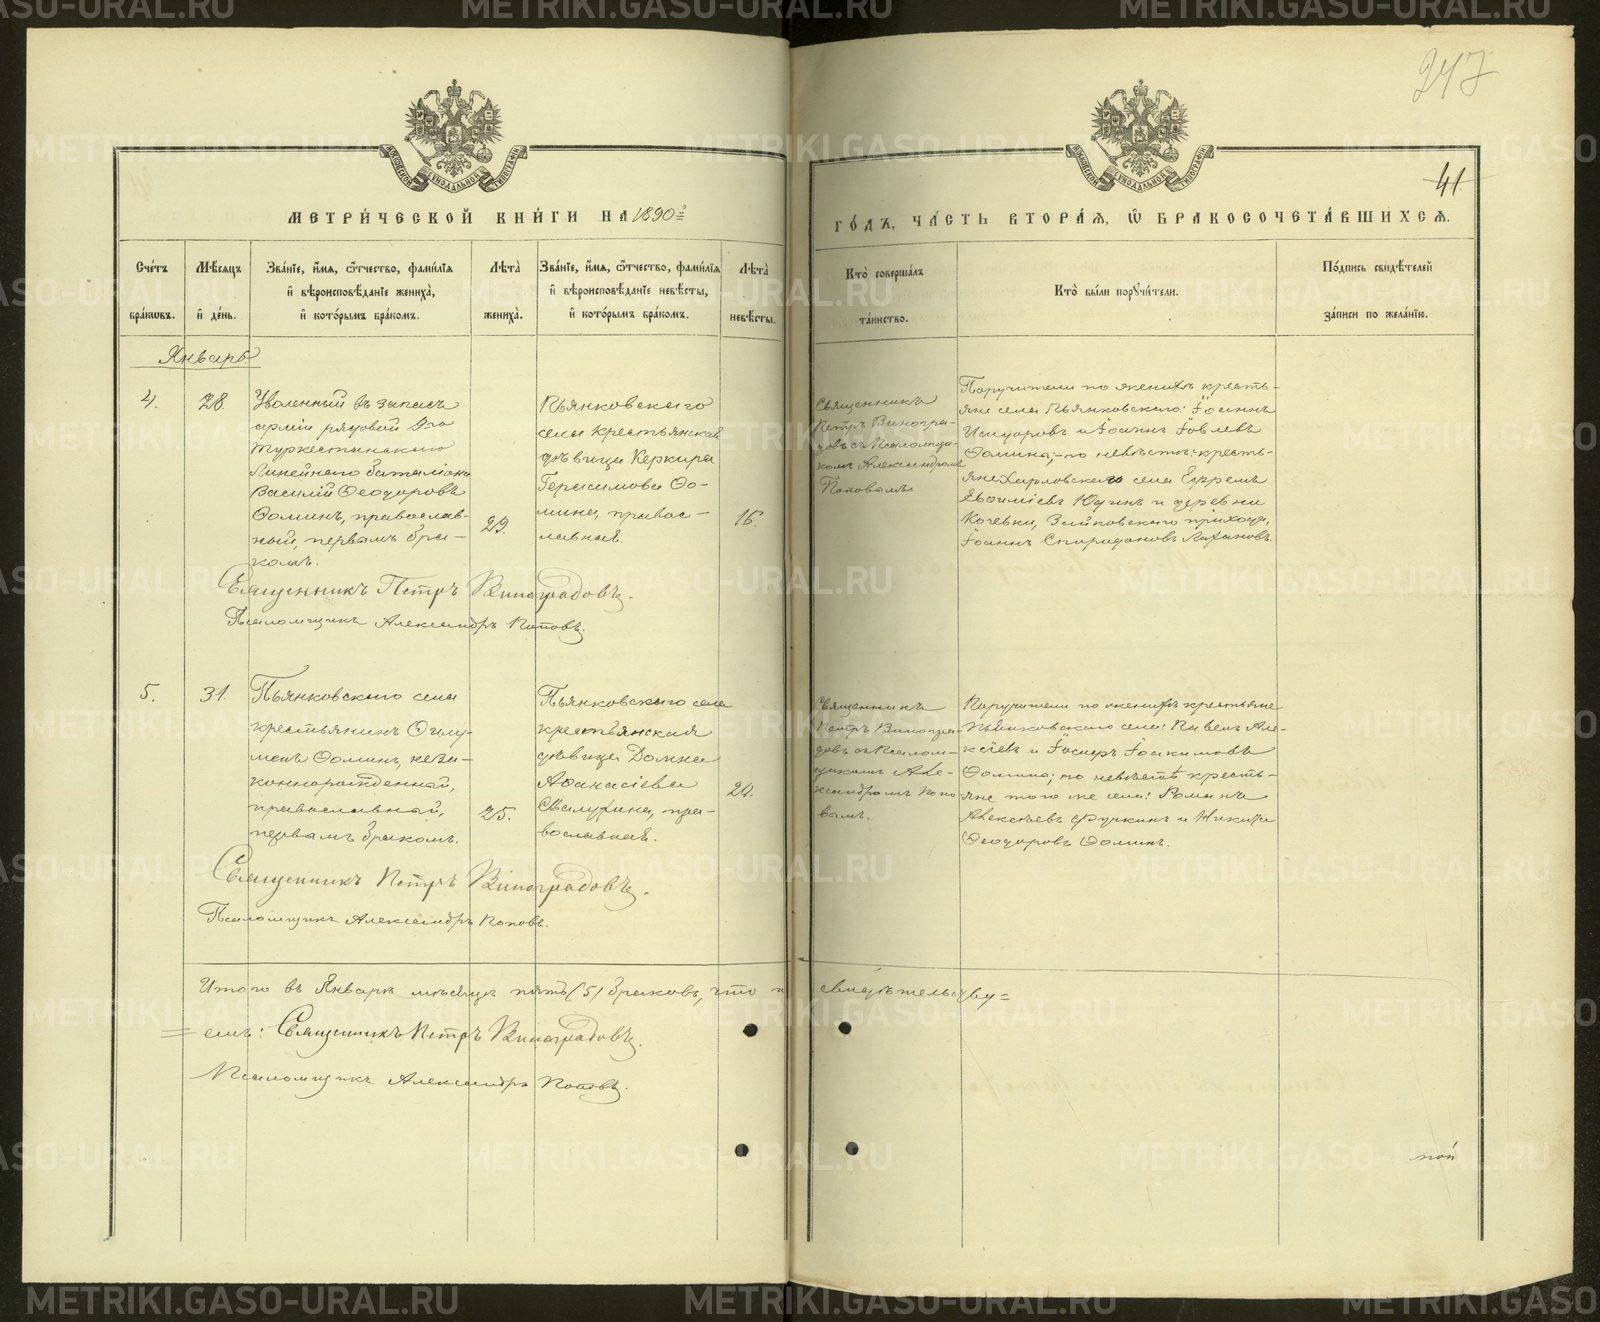 247
41
МЕТРИ́ЧЕСКОЙ КНИ́ГИ НА 1890 ГО́ДЪ, ЧА́СТЬ ВТОРА́Я, Ѡ БРАКОСОЧЕТА́ВШИХСЯ.
Сче́тъ бра́кѡвъ.
Мѣ́сяцъ и҆ де́нь.
Зва́нїе, и҆́мя, ѻ҆́тчество, фами́лїя
и҆ вѣроисповѣ́данїе жениха̀,
и҆ кото́рымъ бра́комъ.
Лѣта̀ жениха̀.
Зва́нїе, и҆́мя, ѻ҆́тчество, фами́лїя
и҆ вѣроисповѣ́данїе невѣ́сты,
и҆ кото́рымъ бра́комъ.
Лѣта̀ невѣ́сты.
Кто̀ соверша́лъ та́инство.
Кто̀ бы́ли поручи́тели.
По́дпись свидѣ́телей за́писи по жела́нїю.
Январь
4.
28.
Уволенный въ запасъ
арміи рядовой
Туркестанскаго
Линейнаго баталіона
Василій Ѳеодоровъ
Ѳоминъ, православ-
ный, первымъ бра-
комъ.
29.
Пьянковскаго
села крестьянская
дѣвица Керкира
Герасимова Ѳо-
мина, право-
славная.
16.
Священникъ
Петръ Виногра-
довъ съ Псаломщи-
комъ Александромъ
Поповымъ
Поручители по женихѣ кресть-
яне села Пьянковскаго: Іоаннъ
Исидоровъ и Іоаннъ Іовлевъ
Ѳомины; по невѣстѣ: кресть-
яне Харловскаго села Ефремъ
Евѳиміевъ Юдинъ и деревни
Кочевки, Зайковскаго прихода,
Іоаннъ Спиридоновъ
Священникъ Петръ Виноградовъ.
Псаломщикъ Александръ Поповъ.
5.
31.
Пьянковскаго села
крестьянинъ
Ѳоминъ, неза-
коннорожденный,
православный,
первымъ бракомъ.
25.
Пьянковскаго села
крестьянская
дѣвица Домна
Аѳанасіева
пра-
вославная.
Священникъ
Петръ Виногра-
довъ съ Псалом-
щикомъ Але-
ксандромъ Попо-
вымъ.
Поручители по женихѣ крестьяне
Пьянковскаго села: Павелъ Але-
ксіевъ и Іосифъ Іоакимовъ
Ѳомины; по невѣстѣ кресть-
яне того же села: Романъ
Алексѣевъ и Никита
Ѳеодоровъ Ѳоминъ.
Священникъ Петръ Виноградовъ.
Псаломщикъ Александръ Поповъ.
Итого въ Январѣ мѣсяцѣ пять (5) браковъ, что и свидѣтельству=
=емъ: Священникъ Петръ Виноградовъ.
Псаломщикъ Александръ Поповъ.
METRIKI.GASO-URAL.RU